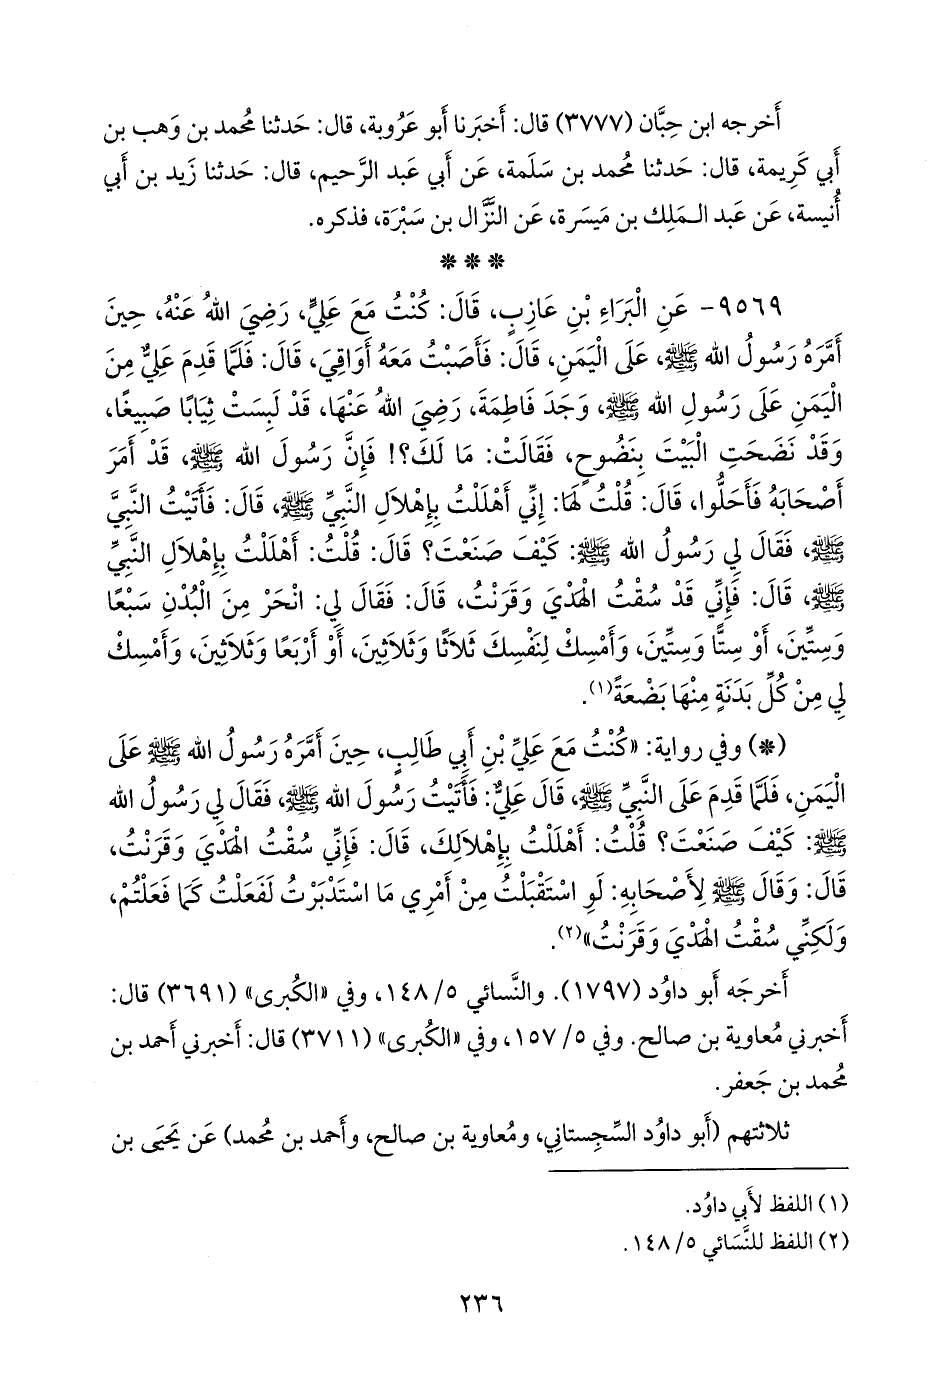 أَخرجه ابن حِبَّان (٣٧٧٧) قال: أَخبَرنا أَبو عَرُوبة، قال: حَدثنا مُحمد بن وَهب بن
أَبي كَرِيمة، قال: حَدثنا مُحمد بن سَلَمة، عَن أَبي عَبد الرَّحيم، قال: حَدثنا زَيد بن أَبي
أُنَيسة، عَن عَبد الـمَلِك بن مَيسَرة، عَن النَّزَّال بن سَبْرَة، فذكره.
* * *
٩٥٦٩- عَنِ الْبَرَاءِ بْنِ عَازِبٍ، قَالَ: كُنْتُ مَعَ عَلِيٍّ، رَضِيَ اللهُ عَنْهُ، حِينَ
أَمَّرَهُ رَسُولُ الله ﷺ، عَلَى الْيَمَنِ، قَالَ: فَأَصَبْتُ مَعَهُ أَوَاقِيَ، قَالَ: فَلَمَّا قَدِمَ عَلِيٌّ مِنَ
الْيَمَنِ عَلَى رَسُولِ الله ﷺ، وَجَدَ فَاطِمَةَ، رَضِيَ اللهُ عَنْهَا، قَدْ لَبِسَتْ ثِيَابًا صَبِيغًا،
وَقَدْ نَضَحَتِ الْبَيْتَ بِنَضُوحٍ، فَقَالَتْ: مَا لَكَ؟! فَإِنَّ رَسُولَ الله ﷺ، قَدْ أَمَرَ
أَصْحَابَهُ فَأَحَلُّوا، قَالَ: قُلْتُ لَهَا: إِنِّي أَهْلَلْتُ بِإِهْلَالِ النَّبِيِّ ﷺ، قَالَ: فَأَتَيْتُ النَّبِيَّ
ﷺ، فَقَالَ لِي رَسُولُ الله ﷺ: كَيْفَ صَنَعْتَ؟ قَالَ: قُلْتُ: أَهْلَلْتُ بِإِهْلَالِ النَّبِيِّ
ﷺ، قَالَ: فَإِنِّي قَدْ سُقْتُ الْهَدْيَ وَقَرَنْتُ، قَالَ: فَقَالَ لِي: انْحَرْ مِنَ الْبُدْنِ سَبْعًا
وَسِتِّينَ، أَوْ سِتًّا وَسِتِّينَ، وَأَمْسِكْ لِنَفْسِكَ ثَلَاثًا وَثَلَاثِينَ، أَوْ أَرْبَعًا وَثَلَاثِينَ، وَأَمْسِكْ
لِي مِنْ كُلِّ بَدَنَةٍ مِنْهَا بَضْعَةً(١).
(*) وفي رواية: «كُنْتُ مَعَ عَلِيِّ بْنِ أَبِي طَالِبٍ، حِينَ أَمَّرَهُ رَسُولُ الله ﷺ عَلَى
الْيَمَنِ، فَلَمَّا قَدِمَ عَلَى النَّبِيِّ ﷺ، قَالَ عَلِيٌّ: فَأَتَيْتُ رَسُولَ الله ﷺ، فَقَالَ لِي رَسُولُ الله
ﷺ: كَيْفَ صَنَعْتَ؟ قُلْتُ: أَهْلَلْتُ بِإِهْلَالِكَ، قَالَ: فَإِنِّي سُقْتُ الْهَدْيَ وَقَرَنْتُ،
قَالَ: وَقَالَ ﷺ لِأَصْحَابِهِ: لَوِ اسْتَقْبَلْتُ مِنْ أَمْرِي مَا اسْتَدْبَرْتُ لَفَعَلْتُ كَمَا فَعَلْتُمْ،
وَلَكِنِّي سُقْتُ الْهَدْيَ وَقَرَنْتُ»(٢).
أَخرجَه أَبو داوُد (١٧٩٧). والنَّسائي ٥/ ١٤٨، وفي «الكُبرى» (٣٦٩١) قال:
أَخبرني مُعاوية بن صالح. وفي ٥/ ١٥٧، وفي «الكُبرى» (٣٧١١) قال: أَخبرني أَحمد بن
مُحمد بن جَعفر.
ثلاثتهم (أَبو داوُد السِّجِستاني، ومُعاوية بن صالح، وأَحمد بن مُحمد) عَن يَحيَى بن
(١) اللفظ لأَبي داوُد.
(٢) اللفظ للنَّسَائي ٥/ ١٤٨.
٢٣٦